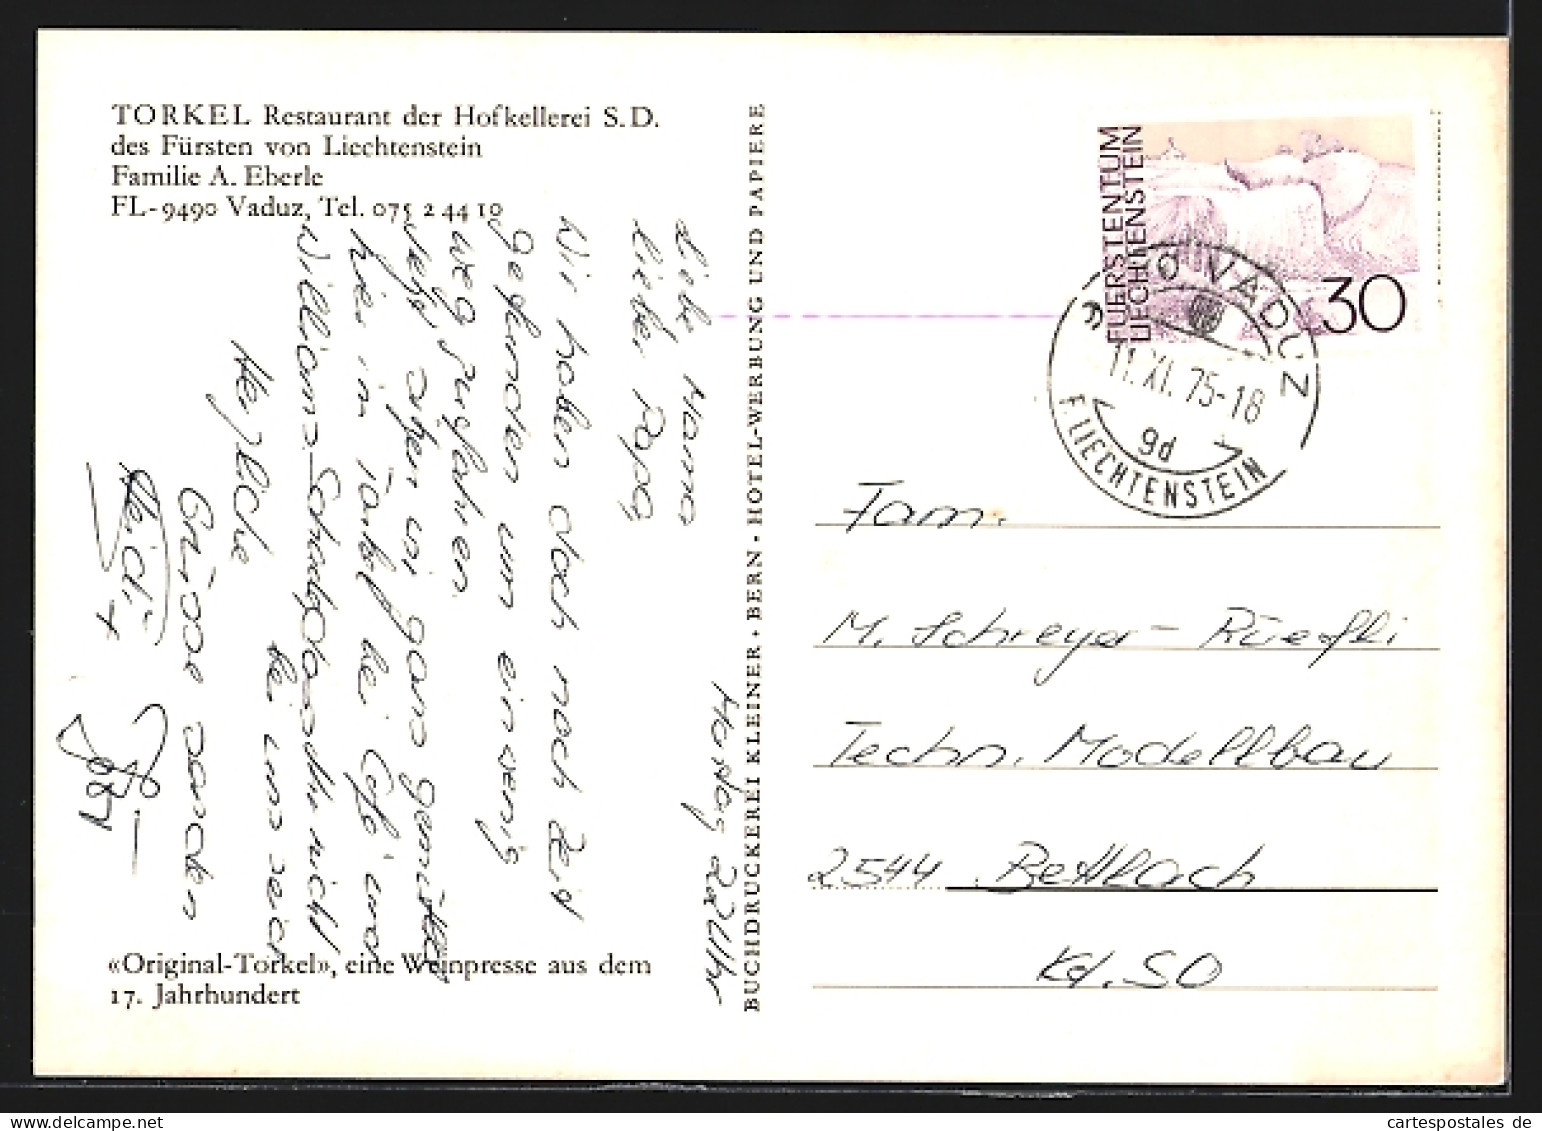 TORKEL Restaurant der Hofkellerei S.D.
des Fürsten von Liechtenstein
Familie A. Eberle
FL-9490 Vaduz, Tel. 075 2 44 10
Montag 22 Uhr
Liebe Mama
Lieber Papa
Wir haben doch noch Zeit
gefunden um ein wenig
wegzufahren
Jetzt sitzen wir ganz gemütlich
hier in Torkel bei Café und
Williams. Schade dass nicht
bei uns seid
Herzliche
Grüsse senden
Heidi +
«Original-Torkel», eine Weinpresse aus dem
17. Jahrhundert
BUCHDRUCKEREI KLEINER · BERN · HOTEL-WERBUNG UND PAPIERE
FUERSTENTUM
LIECHTENSTEIN
30
9490 VADUZ
11.XI.75-18
gd
F. LIECHTENSTEIN
Fam.
M. Schreyer-Rüefli
Techn. Modellbau
2544 Bettlach
Kt. SO
cartespostales de